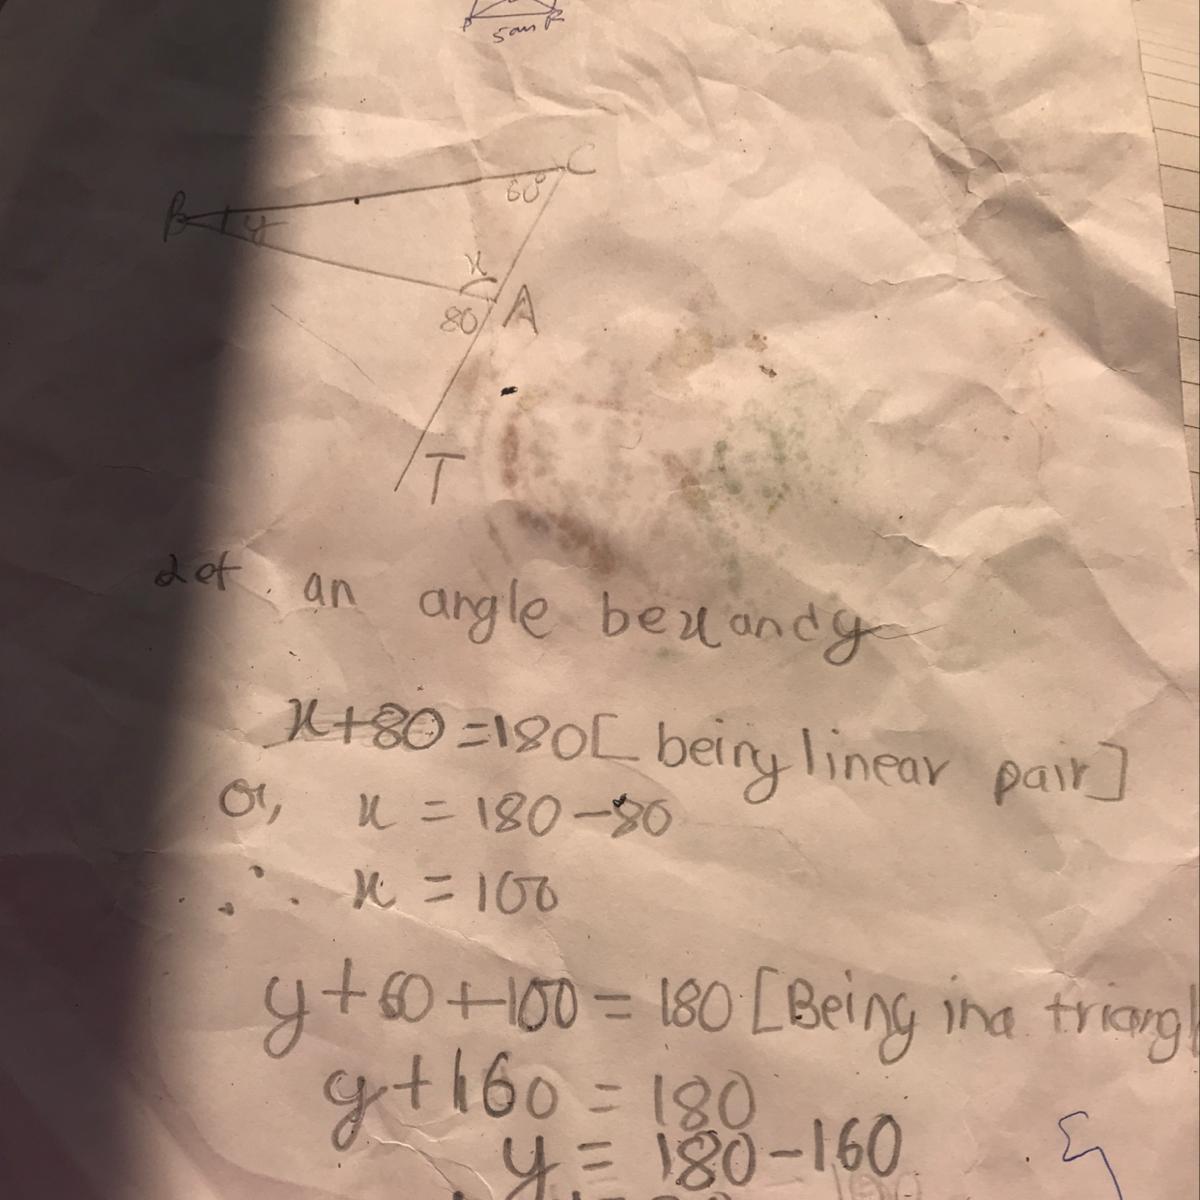 P
5cm R
C
60°
B
y
x
80 A
T
Let an angle be x and y
x+80=180[ being linear pair]
or, x = 180-80
∴ x = 100
y+60+100 = 180 [Being in a triangl
y+160 = 180
y = 180-160